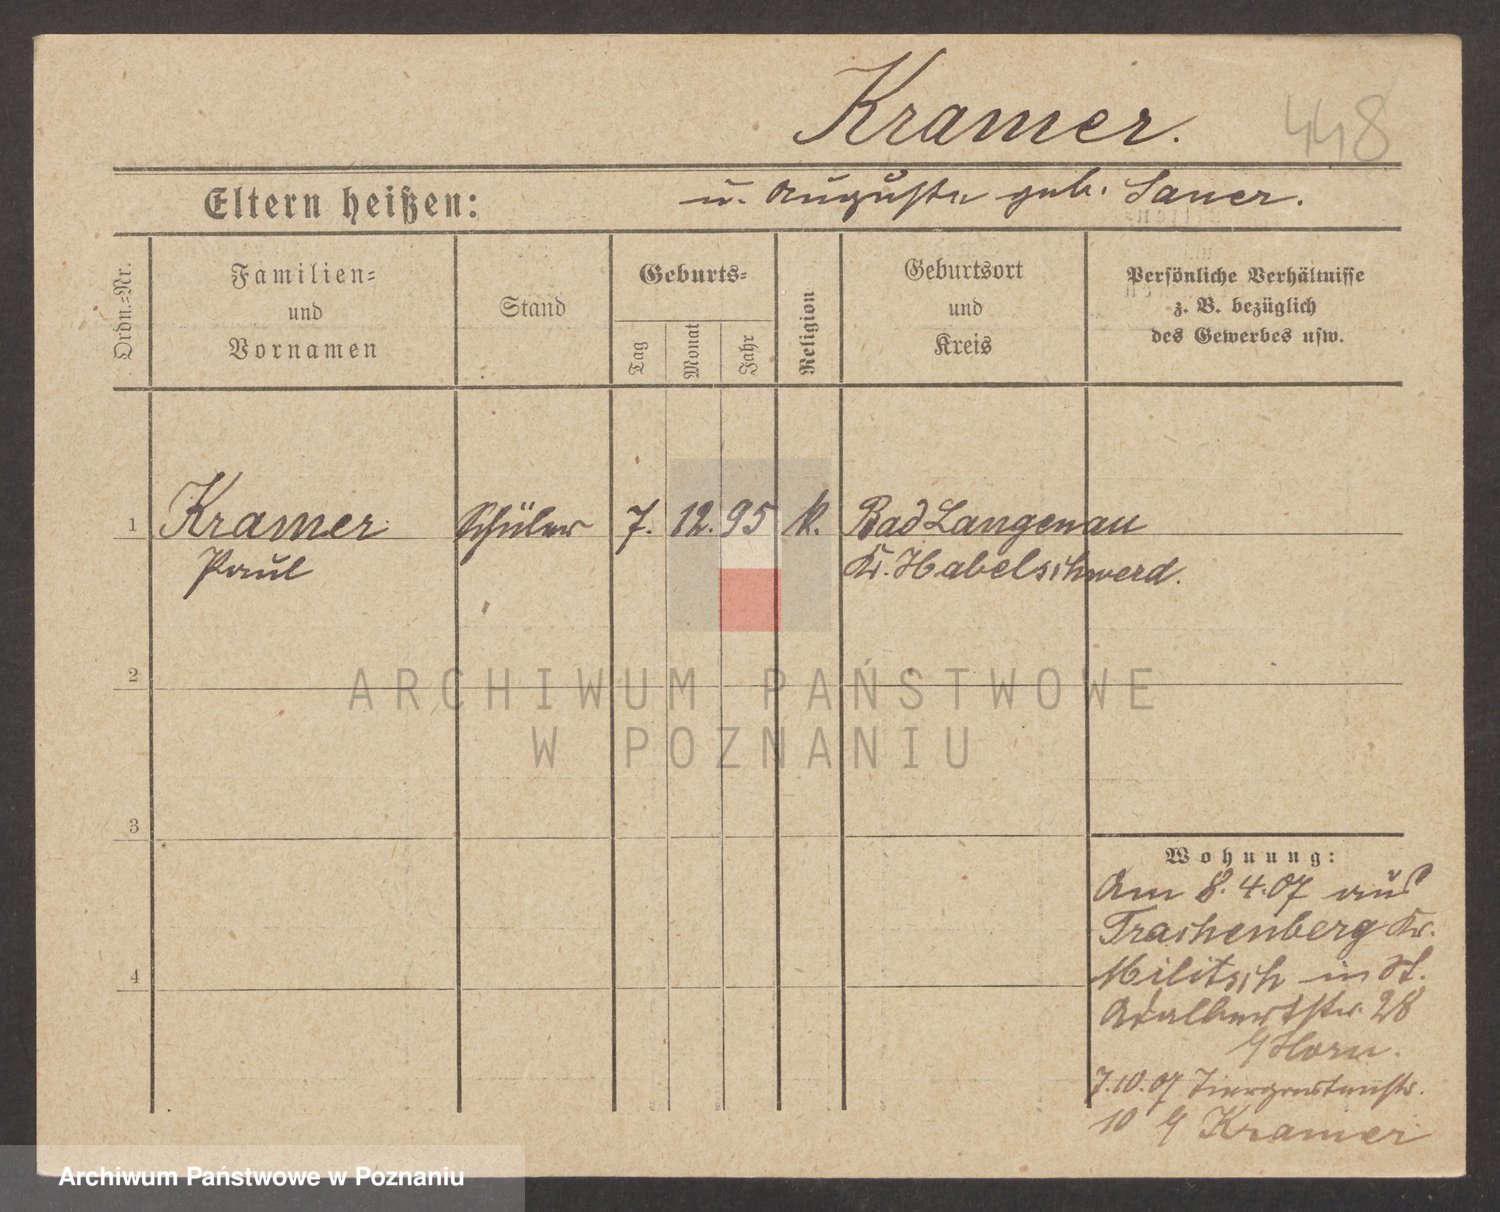 Kramer.
448
Eltern heißen:
u. Auguste geb. Sauer.
Ordn.=Nr.
Familien=
und
Vornamen
Stand
Geburts=
Tag
Monat
Jahr
Religion
Geburtsort
und
Kreis
Persönliche Verhältnisse
z. B. bezüglich
des Gewerbes usw.
1 Kramer Schüler 7. 12. 95 k. Bad Langenau
Paul Kr. Habelschwerd.
2
ARCHIWUM PAŃSTWOWE
W POZNANIU
3
Wohnung:
Am 8.4.07 aus
Trachenberg Kr.
Militsch in St.
Adalbertstr. 28
b/ Horn.
4
7.10.07 Tiergartenstr.
10 b/ Kramer
Archiwum Państwowe w Poznaniu